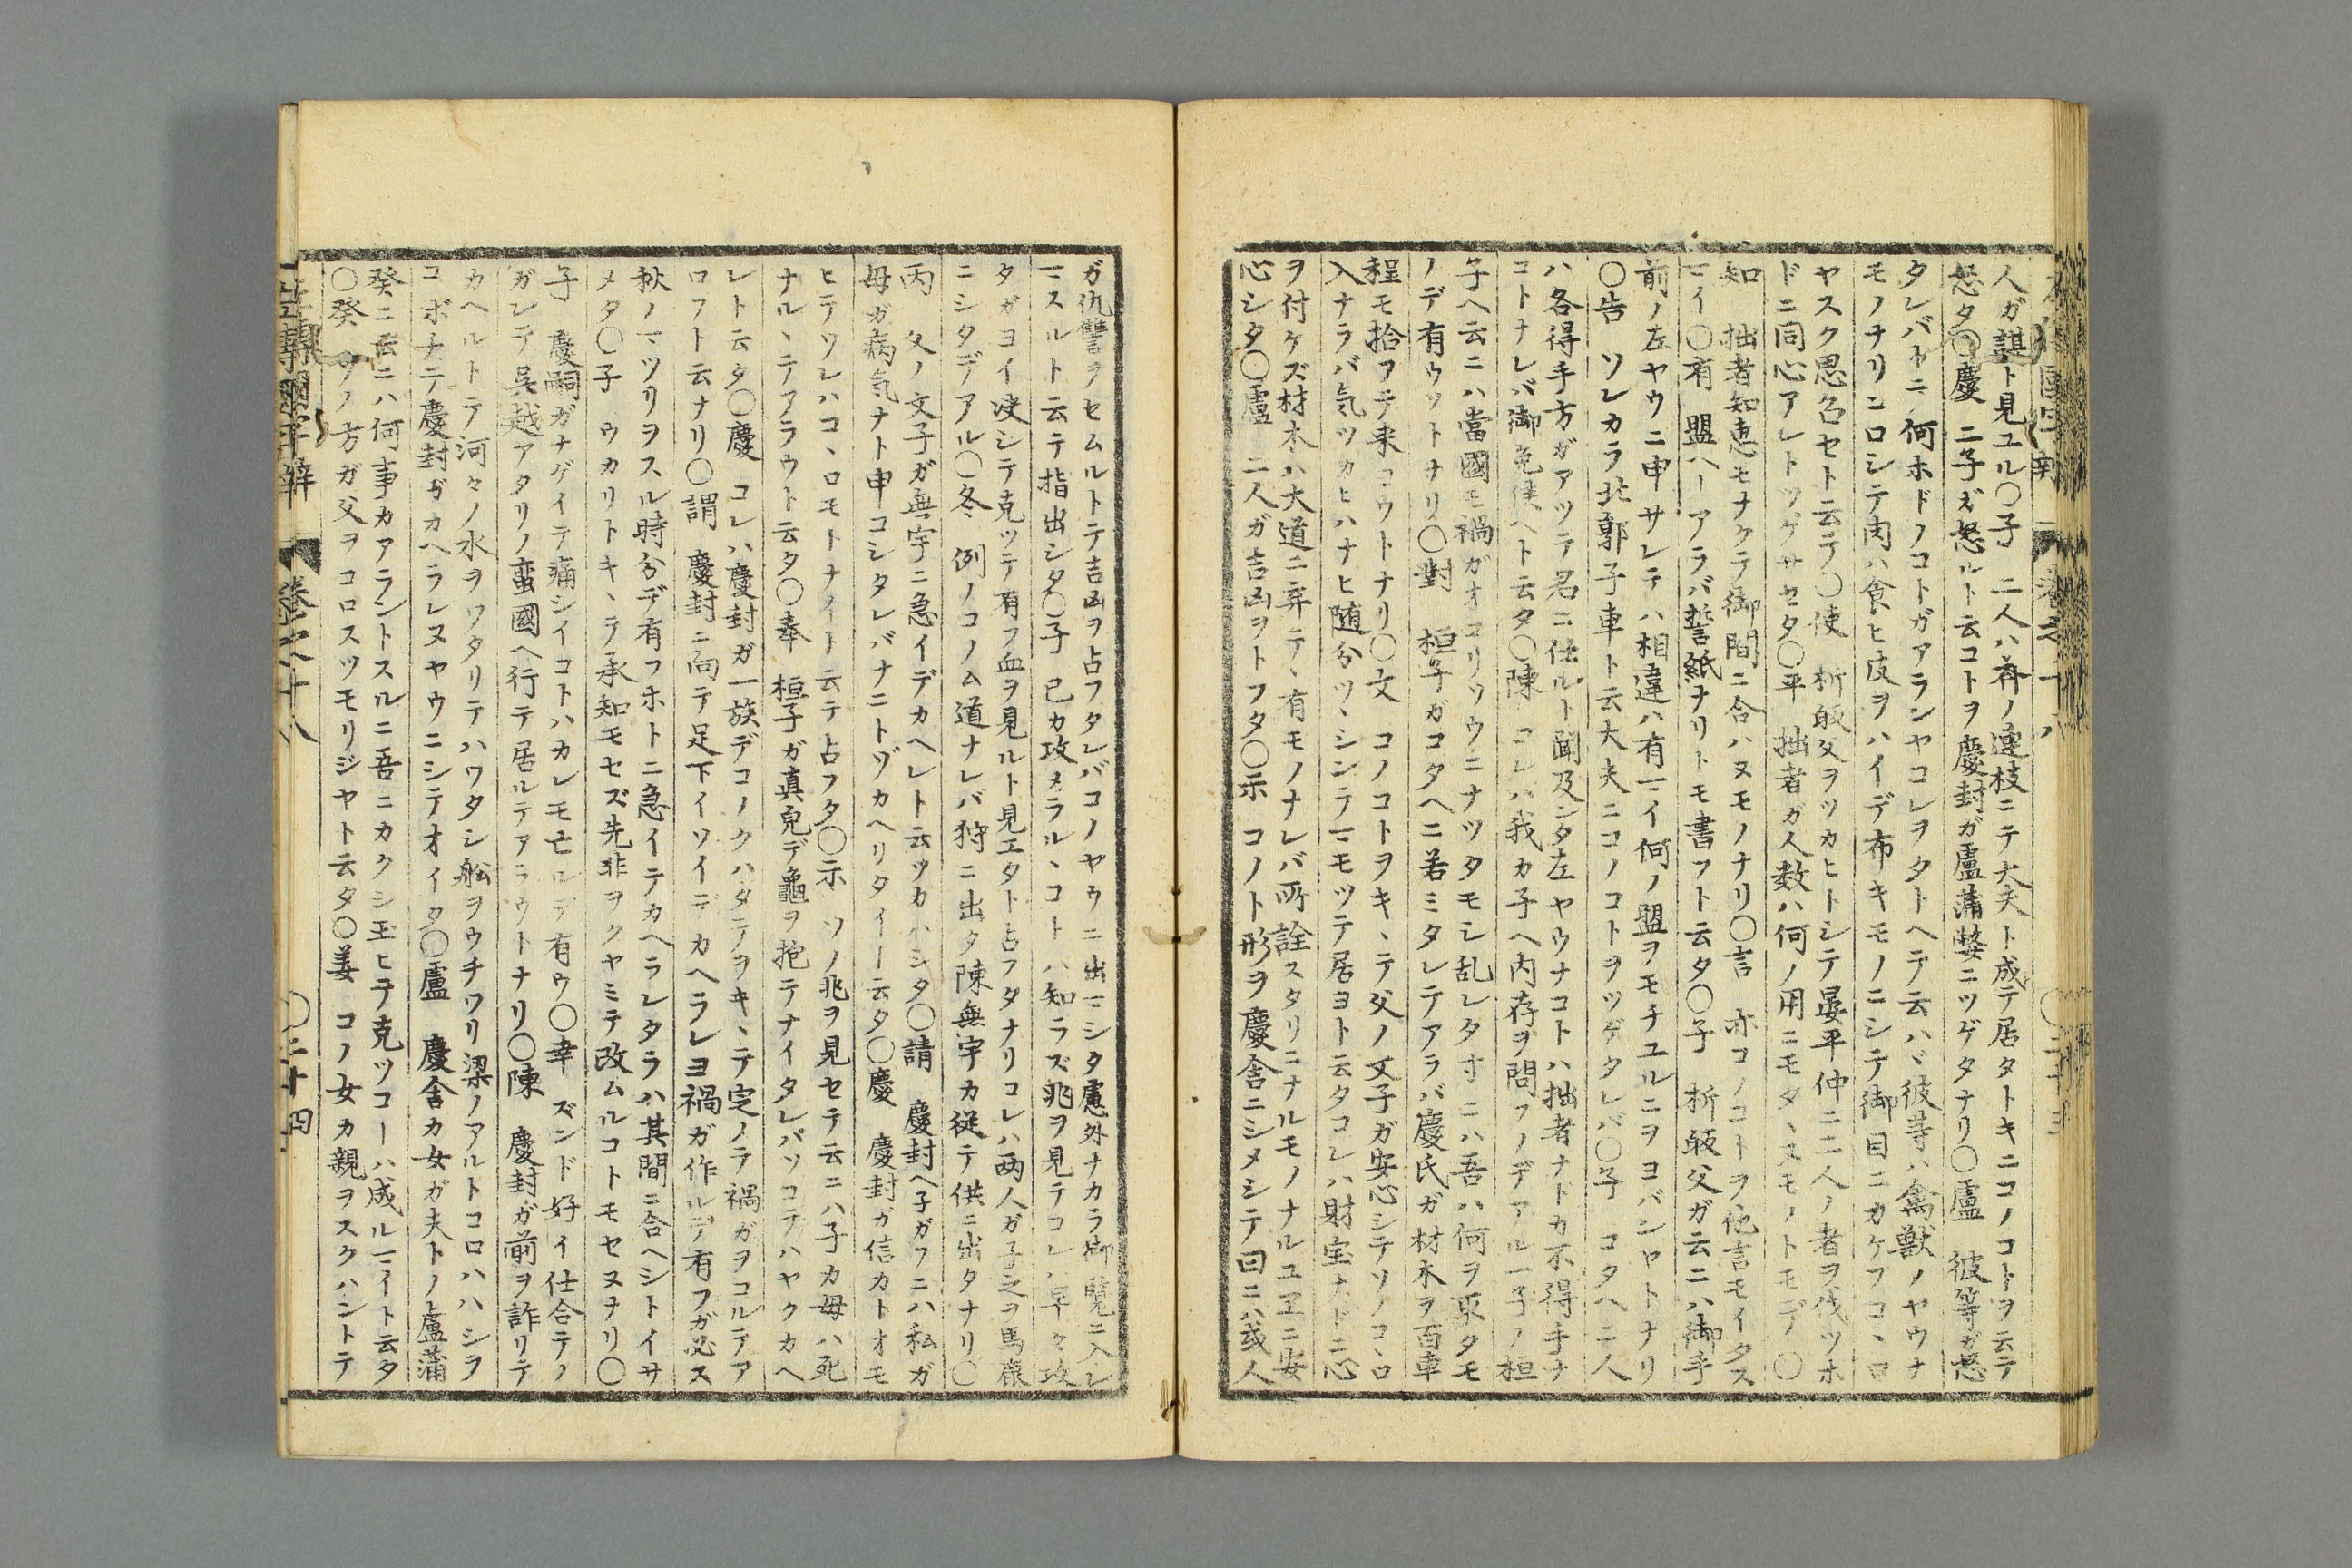 人ガ謀ト見ユル〇子 二人ハ斉ノ連枝ニテ大夫ト成テ居タトキニコノコトヲ云テ
怒タ〇慶 二子ガ怒ルト云コトヲ慶封ガ盧蒲嫳ニツゲタナリ〇盧 彼等ガ怒
タレバトニ何ホドノコトガアランヤコレヲタトヘテ云ハヾ彼等ハ禽獣ノヤウナ
モノナリコロシテ肉ハ食ヒ皮ヲハイデ布キモノニシテ御目ニカケフコヽロ
ヤスク思召セト云テ〇使 析皈父ヲツカヒトシテ晏平仲ニ二人ノ者ヲ伐ツホ
ドニ同心アレトツゲサセタ〇平 拙者ガ人数ハ何ノ用ニモタヽヌモノトモデ〇
知 拙者知恵モナケテ御間ニ合ハヌモノナリ〇言 亦コノコトヲ他言モイタス
マイ〇有 盟ヘーアラバ誓紙ナリトモ書フト云タ〇子 析皈父ガ云ニハ御手
前ノ左ヤウニ申サレテハ相違ハ有マイ何ノ盟ヲモチユルニヲヨバンヤトナリ
〇告 ソレカラ北郭子車ト云大夫ニコノコトヲツゲタレバ〇子 コタヘニ人
ハ各得手方ガアツテ君ニ仕ルト聞及ンタ左ヤウナコトハ拙者ナドカ不得手ナ
コトナレバ御免候ヘト云タ〇陳 コレハ我カ子ヘ内存ヲ問フノデアル一子ノ桓
子ヘ云ニハ當國モ禍ガオコリソウニナツタモシ乱レタ寸ニハ吾ハ何ヲ取タモ
ノデ有ウソトナリ〇對 桓子ガコタヘニ若ミタレテアラバ慶氏ガ材木ヲ百車
程モ拾フテ来コウトナリ〇文 コノコトヲキヽテ父ノ文子ガ安心シテソノコヽロ
入ナラバ気ツカヒハナヒ随分ツヽシンテマモツテ居ヨト云タコレハ財宝ナドニ心
ヲ付ケズ材木ハ大道ニ弃テヽ有モノナレバ所詮スタリニナルモノナルユヱニ安
心シタ〇盧 二人ガ吉凶ヲトフタ〇示 コノト形ヲ慶舎ニシメシテ曰ニハ或人
ガ仇讐ヲセムルトテ吉凶ヲ占フタレバコノヤウニ出マシタ慮外ナカラ御覧ニ入レ
マスルト云テ指出シタ〇子 己カ攻メラルヽコトハ知ラズ兆ヲ見テコレハ早々攻
タガヨイ決シテ克ツテ有フ血ヲ見ルト見エタト占フタナリコレハ両人ガ子之ヲ馬鹿
ニシタデアル〇冬 例ノコノム道ナレバ狩ニ出タ陳無宇カ従テ供ニ出タナリ〇
丙 父ノ文子ガ無宇ニ急イデカヘレト云ツカハシタ〇請 慶封ヘ子ガフニハ私ガ
母ガ病気ナト申コシタレバナニトゾカヘリタイー云タ〇慶 慶封ガ信カトオモ
ヒテソレハコヽロモトナイト云テ占フタ〇示 ソノ兆ヲ見セテ云ニハ子カ母ハ死
ナルヽニテアラウト云タ〇奉 桓子ガ真皃デ龜ヲ抱テナイタレバソコテハヤクカヘ
レト云タ〇慶 コレハ慶封ガ一族デコノクハダテヲキヽテ定ノテ禍ガヲコルテア
ロフト云ナリ〇謂 慶封ニ向テ足下イソイデカヘラレヨ禍ガ作ルデ有フガ必ス
秋ノマツリヲスル時分デ有フホトニ急イテカヘラレタラハ其間ニ合ヘシトイサ
メタ〇子 ウカリトキヽテ承知モセズ先非ヲクヤミテ改ムルコトモセヌナリ〇
子 慶嗣ガナゲイテ痛シイコトハカレモ亡ルデ有ウ〇幸 ズンド好イ仕合テノ
ガレテ呉越アタリノ蛮國ヘ行テ居ルテアラウトナリ〇陳 慶封ガ前ヲ詐リテ
カヘルトテ河々ノ水ヲワタリテハワタシ舩ヲウチワリ梁ノアルトコロハハシヲ
コボチテ慶封ガカヘラレヌヤウニシテオイタ〇盧 慶舎カ女ガ夫トノ盧蒲
癸ニ云ニハ何事カアラントスルニ吾ニカクシ玉ヒテ克ツコーハ成ルマイト云タ
〇癸 ソノ方ガ父ヲコロスツモリジヤト云タ〇姜 コノ女カ親ヲスクハントテ
左傳國字辨 卷之十八 〇二十四